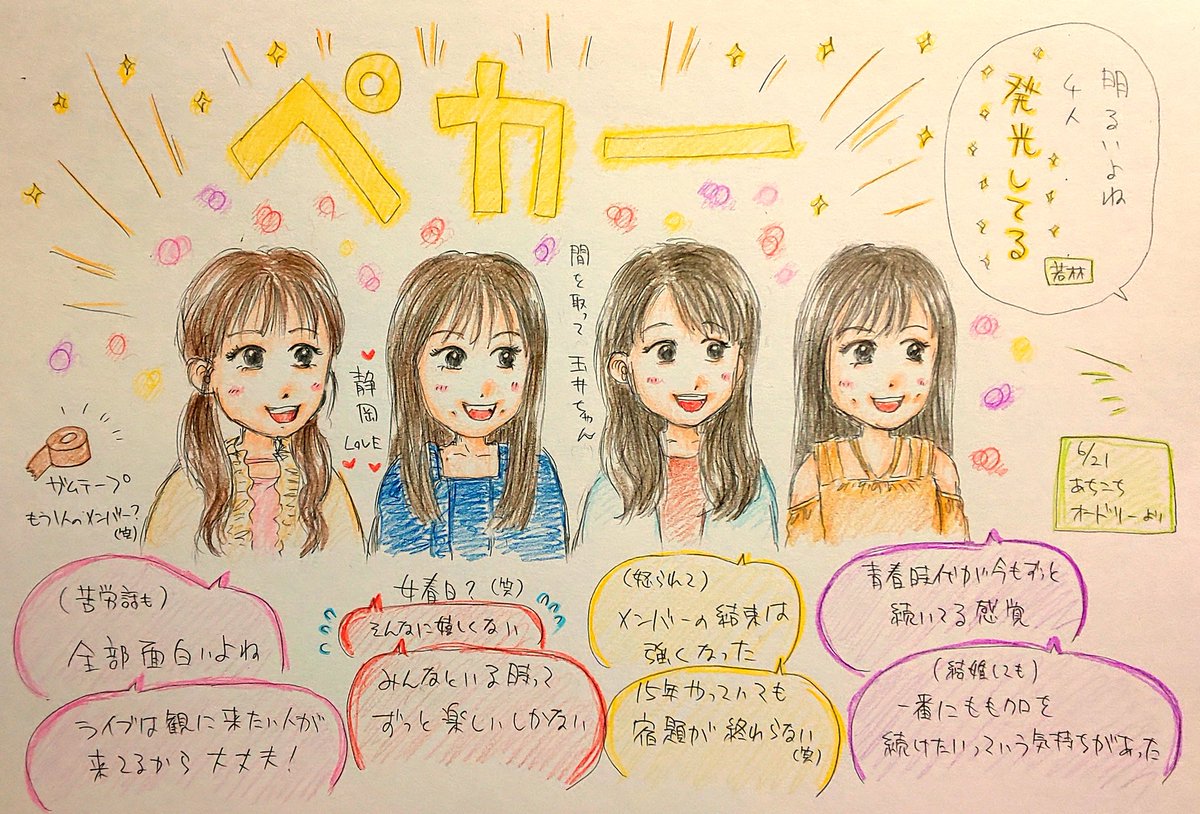 ペカー
明るいよね
4人
発光してる
若林
間を取って 玉井ちゃん
静岡
LOVE
ガムテープ
もう1人のメンバー?
(笑)
6/21
あちこち
オードリーより
(苦労話も)
全部面白いよね
ライブは観に来たい人が
来てるから大丈夫!
女春日?(笑)
そんなに嬉しくない
みんなといる時って
ずっと楽しいしかない
(怒られて)
メンバーの結束は
強くなった
15年やっていても
宿題が終わらない
(笑)
青春時代が今もずっと
続いてる感覚
(結婚しても)
一番にももクロを
続けたいっていう気持ちがあった